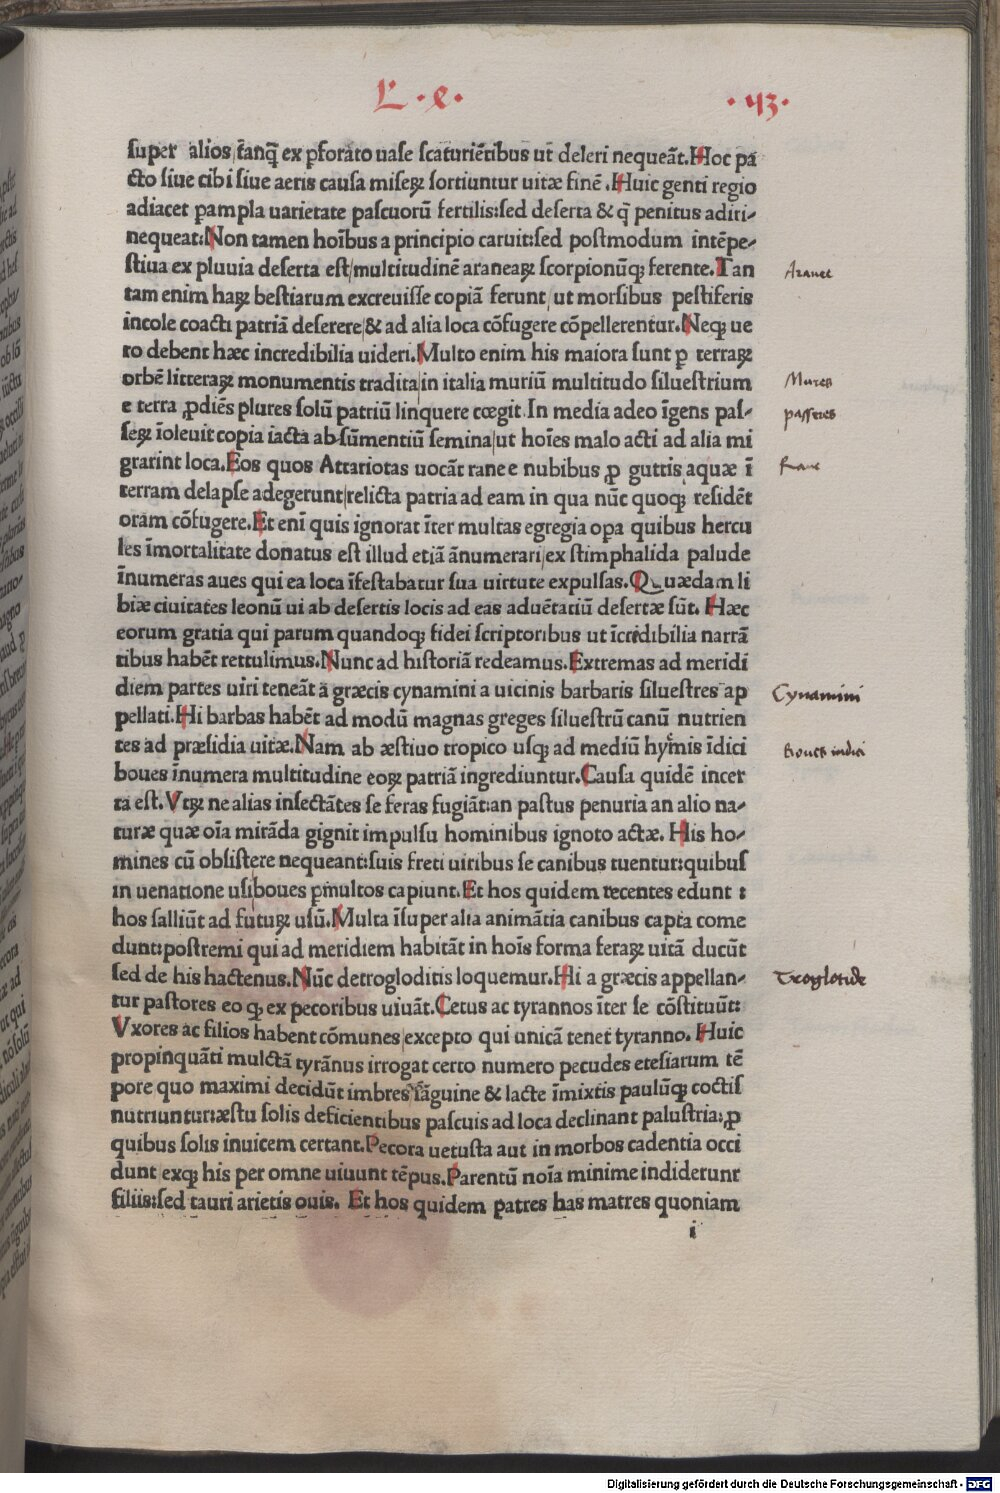 L · e ·
· 43 ·
super alios tanq̃ ex pforato uase scaturiẽtibus ut deleri nequeãt. Hoc pa
cto siue cibi siue aeris causa miseꝝ sortiuntur uitæ finẽ. Huic genti regio
adiacet pampla uarietate pascuorũ fertilis: sed deserta & q̃ penitus adiri-
nequeat: Non tamen hoĩbus a principio caruit: sed postmodum intẽpe-
stiua ex pluuia deserta est multitudinẽ araneaꝝ scorpionũqꝫ ferente. Tan
Aranee
tam enim haꝝ bestiarum excreuisse copiã ferunt, ut morsibus pestiferis
incole coacti patriã deserere, & ad alia loca cõfugere cõpellerentur. Neqꝫ ue
ro debent hæc incredibilia uideri. Multo enim his maiora sunt ꝑ terraꝝ
orbẽ litteraꝝ monumentis tradita, in italia muriũ multitudo siluestrium
Mures
e terra ꝓdiẽs plures solũ patriũ linquere cœgit. In media adeo ĩgens pas-
passeres
seꝝ ĩoleuit copia iacta ab sũmentiũ semina, ut hoĩes malo acti ad alia mi
grarint loca. Eos quos Attariotas uocãt rane e nubibus ꝓ guttis aquæ ĩ
Rane
terram delapse adegerunt, relicta patria ad eam in qua nũc quoqꝫ residẽt
oram cõfugere. Et enĩ quis ignorat ĩter multas egregia opa quibus hercu
les ĩmortalitate donatus est illud etiã ãnumerari, ex stimphalida palude
ĩnumeras aues qui ea loca ĩfestabatur sua uirtute expulsas. Quædam li
biæ ciuitates leonũ ui ab desertis locis ad eas aduẽtatiũ desertæ sũt. Hæc
eorum gratia qui parum quandoqꝫ fidei scriptoribus ut ĩcredibilia narrã
tibus habẽt rettulimus. Nunc ad historiã redeamus. Extremas ad meridi
diem partes uiri teneãt a græcis cynamini a uicinis barbaris siluestres ap
Cynamini
pellati. Hi barbas habẽt ad modũ magnas greges siluestrũ canũ nutrien
tes ad præsidia uitæ. Nam ab æstiuo tropico usqꝫ ad mediũ hyẽmis ĩdici
Boues indici
boues ĩnumera multitudine eoꝝ patriã ingrediuntur. Causa quidẽ incer
ta est. Vtꝝ ne alias insectãtes se feras fugiãt: an pastus penuria an alio na-
turæ quæ oĩa mirãda gignit impulsu hominibus ignoto actæ. His ho-
mines cũ obsistere nequeant: suis freti uiribus se canibus tuentur: quibus
in uenatione usi boues pmultos capiunt. Et hos quidem recentes edunt :
hos salliũt ad futuꝝ usũ. Multa ĩsuper alia animãtia canibus capta come
dunt: postremi qui ad meridiem habitãt in hoĩs forma feraꝝ uitã ducũt
sed de his hactenus. Nũc detrogloditis loquemur. Hi a græcis appellan-
Troglotide
tur pastores eo qꝫ ex pecoribus uiuãt. Cetus ac tyrannos ĩter se cõstituũt:
Vxores ac filios habent cõmunes, excepto qui unicã tenet tyranno. Huic
propinquãti mulctã tyrãnus irrogat certo numero pecudes etesiarum tẽ
pore quo maximi decidũt imbres sãguine & lacte ĩmixtis paulũqꝫ coctis
nutriuntur: æstu solis deficientibus pascuis ad loca declinant palustria: ꝓ
quibus solis inuicem certant. Pecora uetusta aut in morbos cadentia occi
dunt exqꝫ his per omne uiuunt tẽpus. Parentũ noĩa minime indiderunt
filiis: sed tauri arietis ouis. Et hos quidem patres has matres quoniam
i
Digitalisierung gefördert durch die Deutsche Forschungsgemeinschaft - DFG